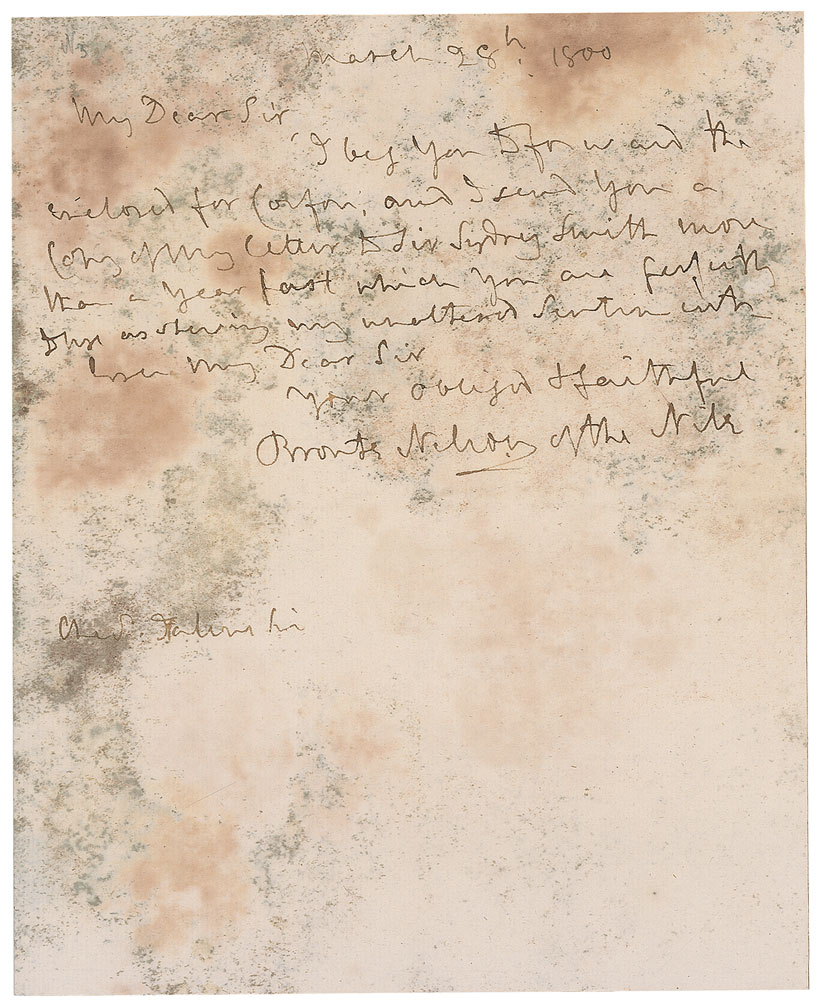 March 28th. 1800
My Dear Sir
I beg You to forward the
enclosed for Corfou, and I send You a
Copy of My letter to Sir Sydney Smith more
than a Year past which You are perfectly
as shewing my unaltered Sentim
Ever My Dear Sir
Your obliged & faithful
Bronte Nelson of the Nile